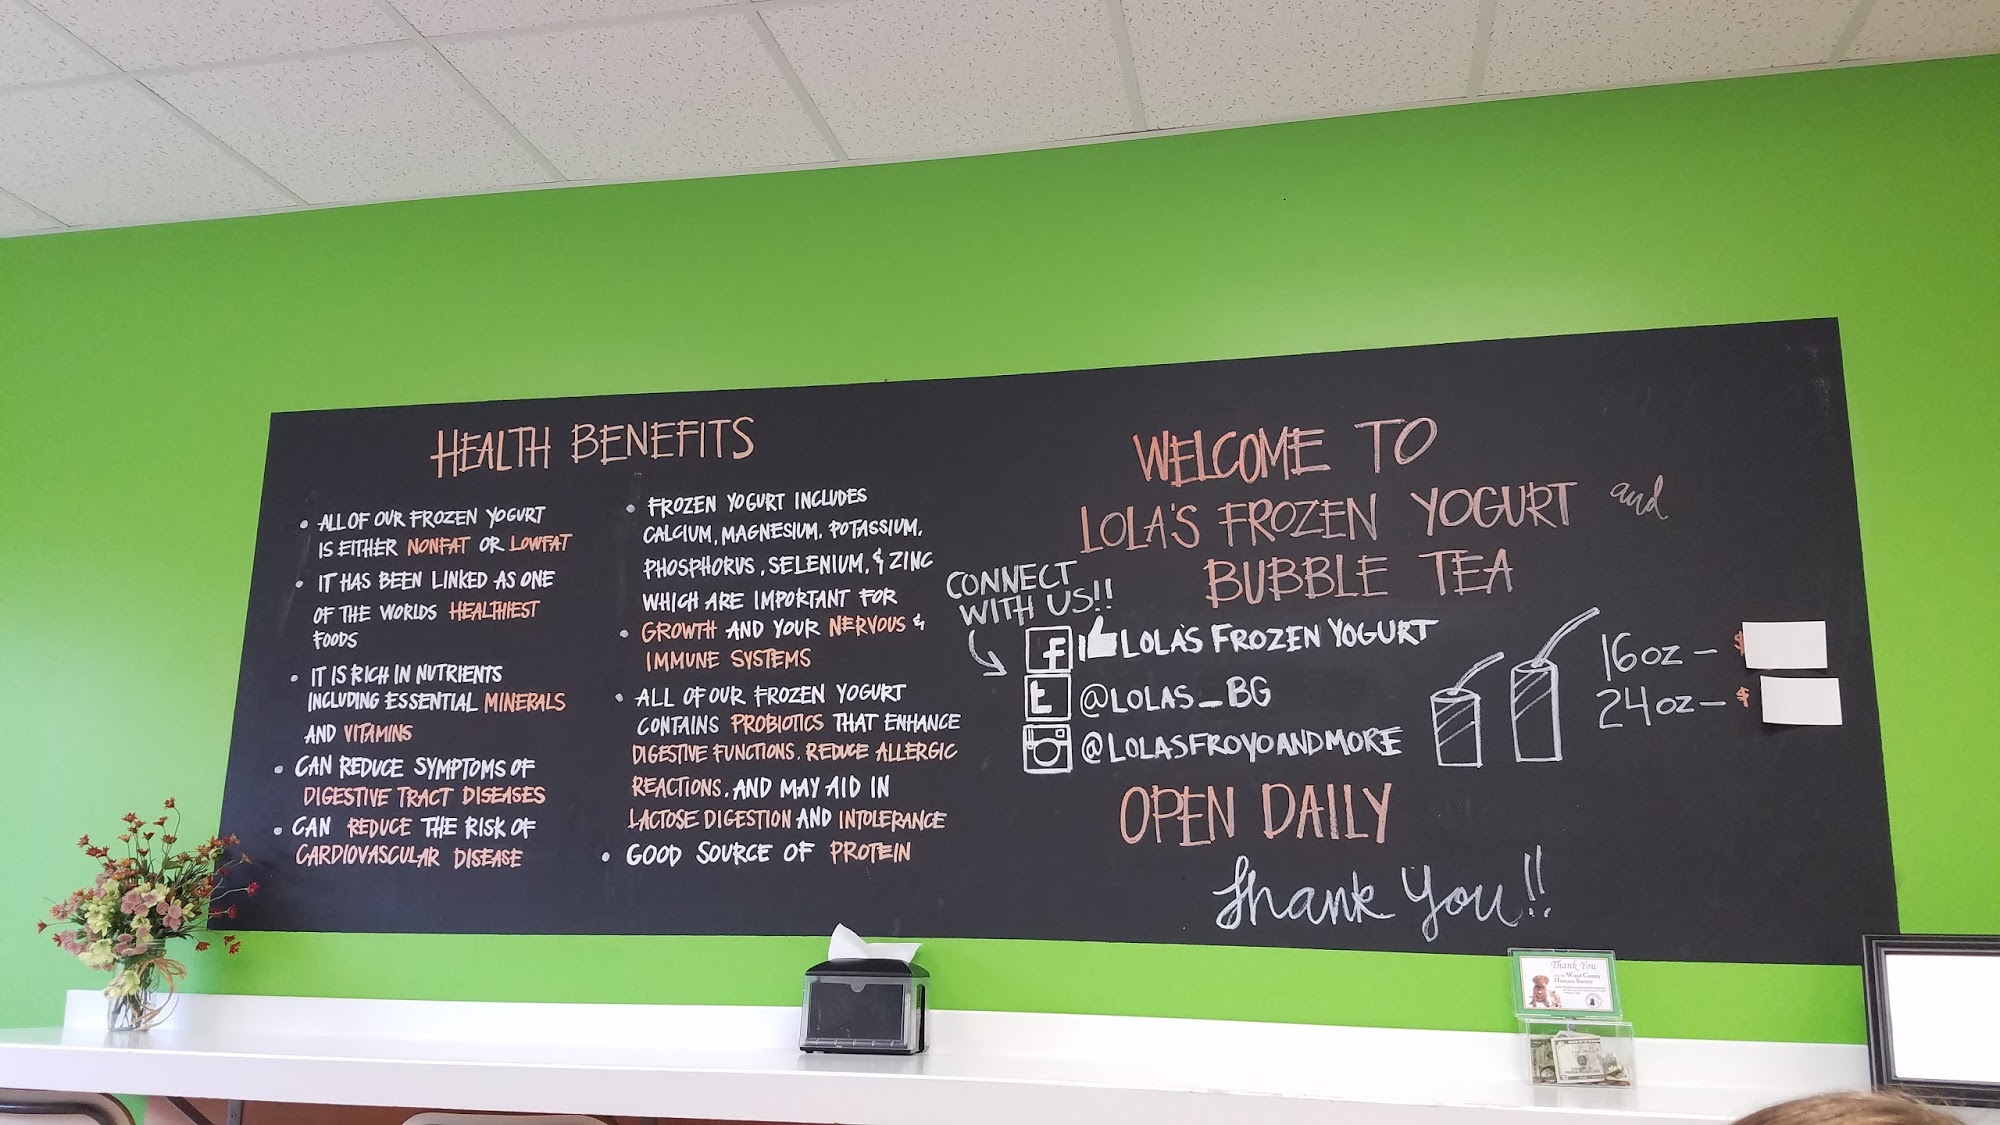 HEALTH BENEFITS
• ALL OF OUR FROZEN YOGURT
IS EITHER NONFAT OR LOWFAT
• IT HAS BEEN LINKED AS ONE
OF THE WORLDS HEALTHIEST
FOODS
• IT IS RICH IN NUTRIENTS
INCLUDING ESSENTIAL MINERALS
AND VITAMINS
• CAN REDUCE SYMPTOMS OF
DIGESTIVE TRACT DISEASES
• CAN REDUCE THE RISK OF
CARDIOVASCULAR DISEASE
• FROZEN YOGURT INCLUDES
CALCIUM, MAGNESIUM, POTASSIUM,
PHOSPHORUS, SELENIUM, & ZINC
WHICH ARE IMPORTANT FOR
• GROWTH AND YOUR NERVOUS &
IMMUNE SYSTEMS
• ALL OF OUR FROZEN YOGURT
CONTAINS PROBIOTICS THAT ENHANCE
DIGESTIVE FUNCTIONS, REDUCE ALLERGIC
REACTIONS, AND MAY AID IN
LACTOSE DIGESTION AND INTOLERANCE
• GOOD SOURCE OF PROTEIN
WELCOME TO
LOLA'S FROZEN YOGURT and
BUBBLE TEA
CONNECT
WITH US!!
f LOLA'S FROZEN YOGURT
t @LOLAS_BG
@LOLASFROYOANDMORE
16oz - $
24oz - $
OPEN DAILY
Thank You!!
Thank You
Wood County
Humane Society